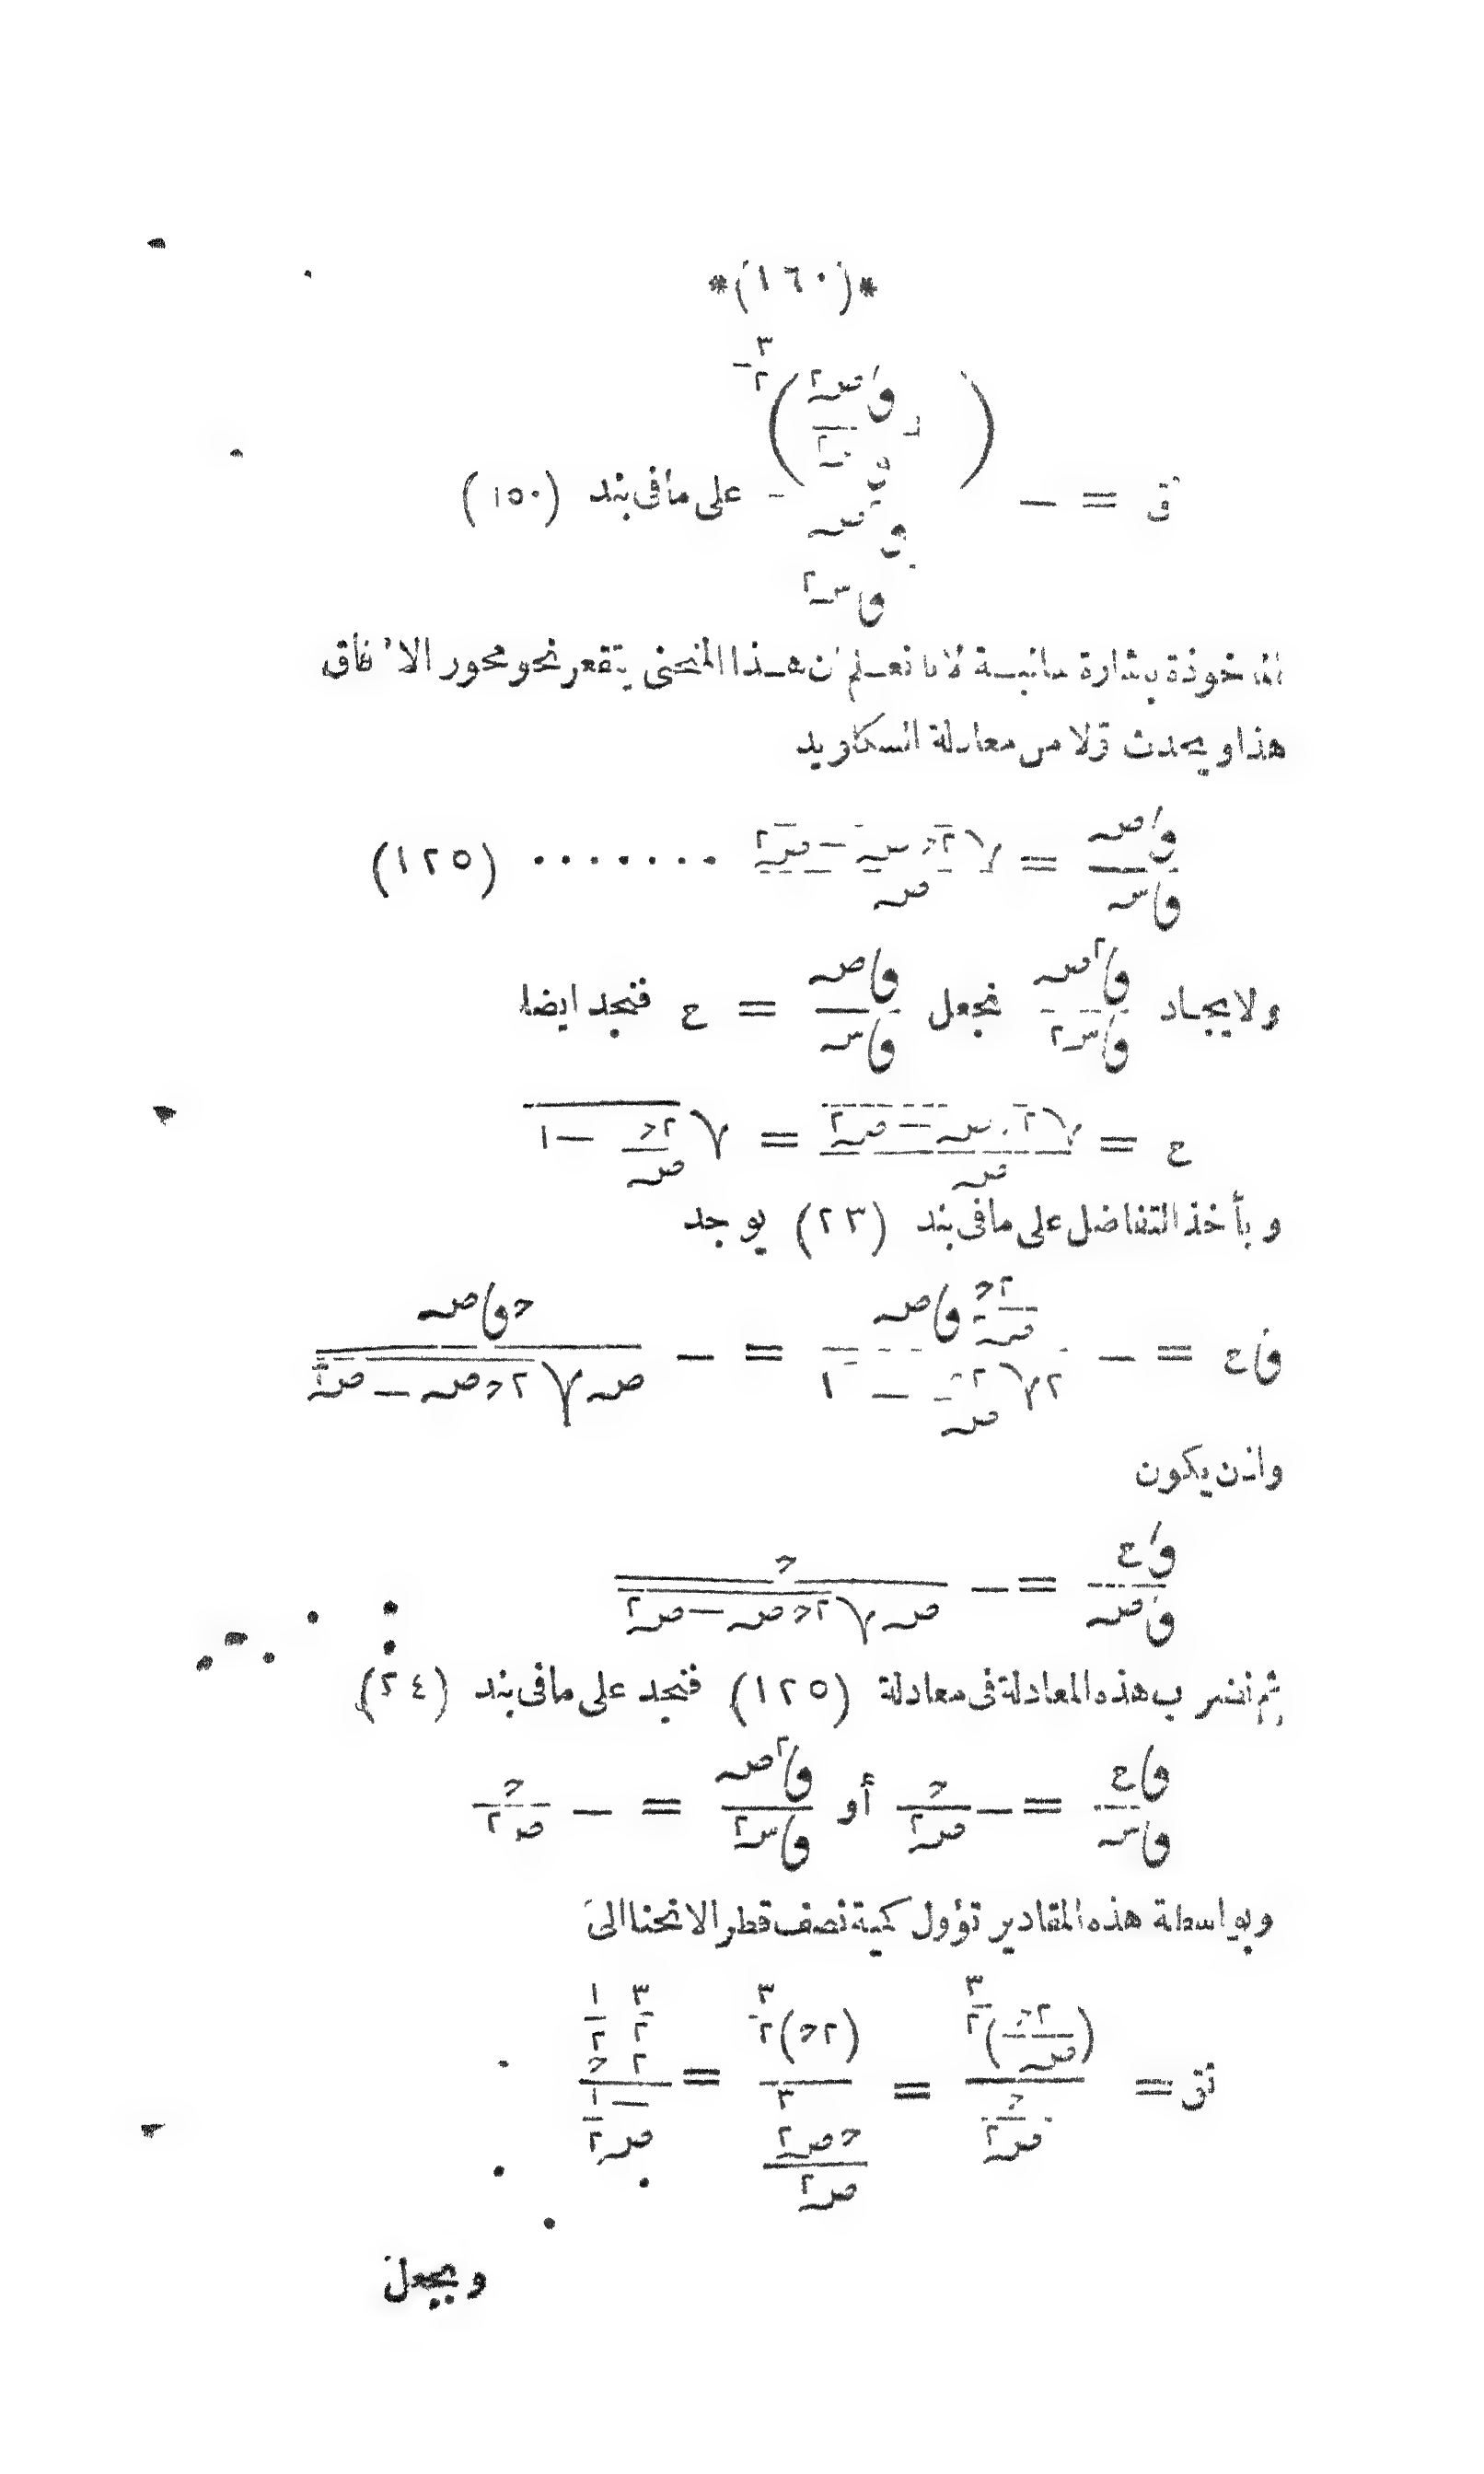 *(١٦٠)*
نق = − (١ + فا صہ٢ / فا سہ٢)^(٣/٢) / (فا٢ صہ / فا سہ٢) على ما فى بند (١٥٠)
المأخوذة بشارة سالبة لاننا نعلم ان هذا المنحنى يتقعر نحو محور الافاق
هذا ويحدث اولا من معادلة السكلويد
فا صہ / فا سہ = √(٢ح صہ − صہ٢) / صہ ....... (١٢٥)
ولايجاد فا٢ صہ / فا سہ٢ نجعل فا صہ / فا سہ = ع فنجد ايضا
ع = √(٢ح صہ − صہ٢) / صہ = √(٢ح / صہ − ١)
وبأخذ التفاضل على ما فى بند (٢٣) يوجد
فا ع = − (٢ح / صہ٢) فا صہ / ٢√(٢ح / صہ − ١) = − ح فا صہ / صہ √(٢ح صہ − صہ٢)
واذن يكون
فا ع / فا صہ = − ح / صہ √(٢ح صہ − صہ٢)
ثم نضرب هذه المعادلة فى معادلة (١٢٥) فنجد على ما فى بند (٢٤)
فا ع / فا سہ = − ح / صہ٢ أو فا٢ صہ / فا سہ٢ = − ح / صہ٢
وبواسطة هذه المقادير تؤول كمية نصف قطر الانحنا الى
نق = (٢ح / صہ)^(٣/٢) / (ح / صہ٢) = (٢ح)^(٣/٢) / (ح صہ^(٣/٢) / صہ٢) = ٢^(٣/٢) ح^(١/٢) / صہ^(−١/٢)
ويجعل